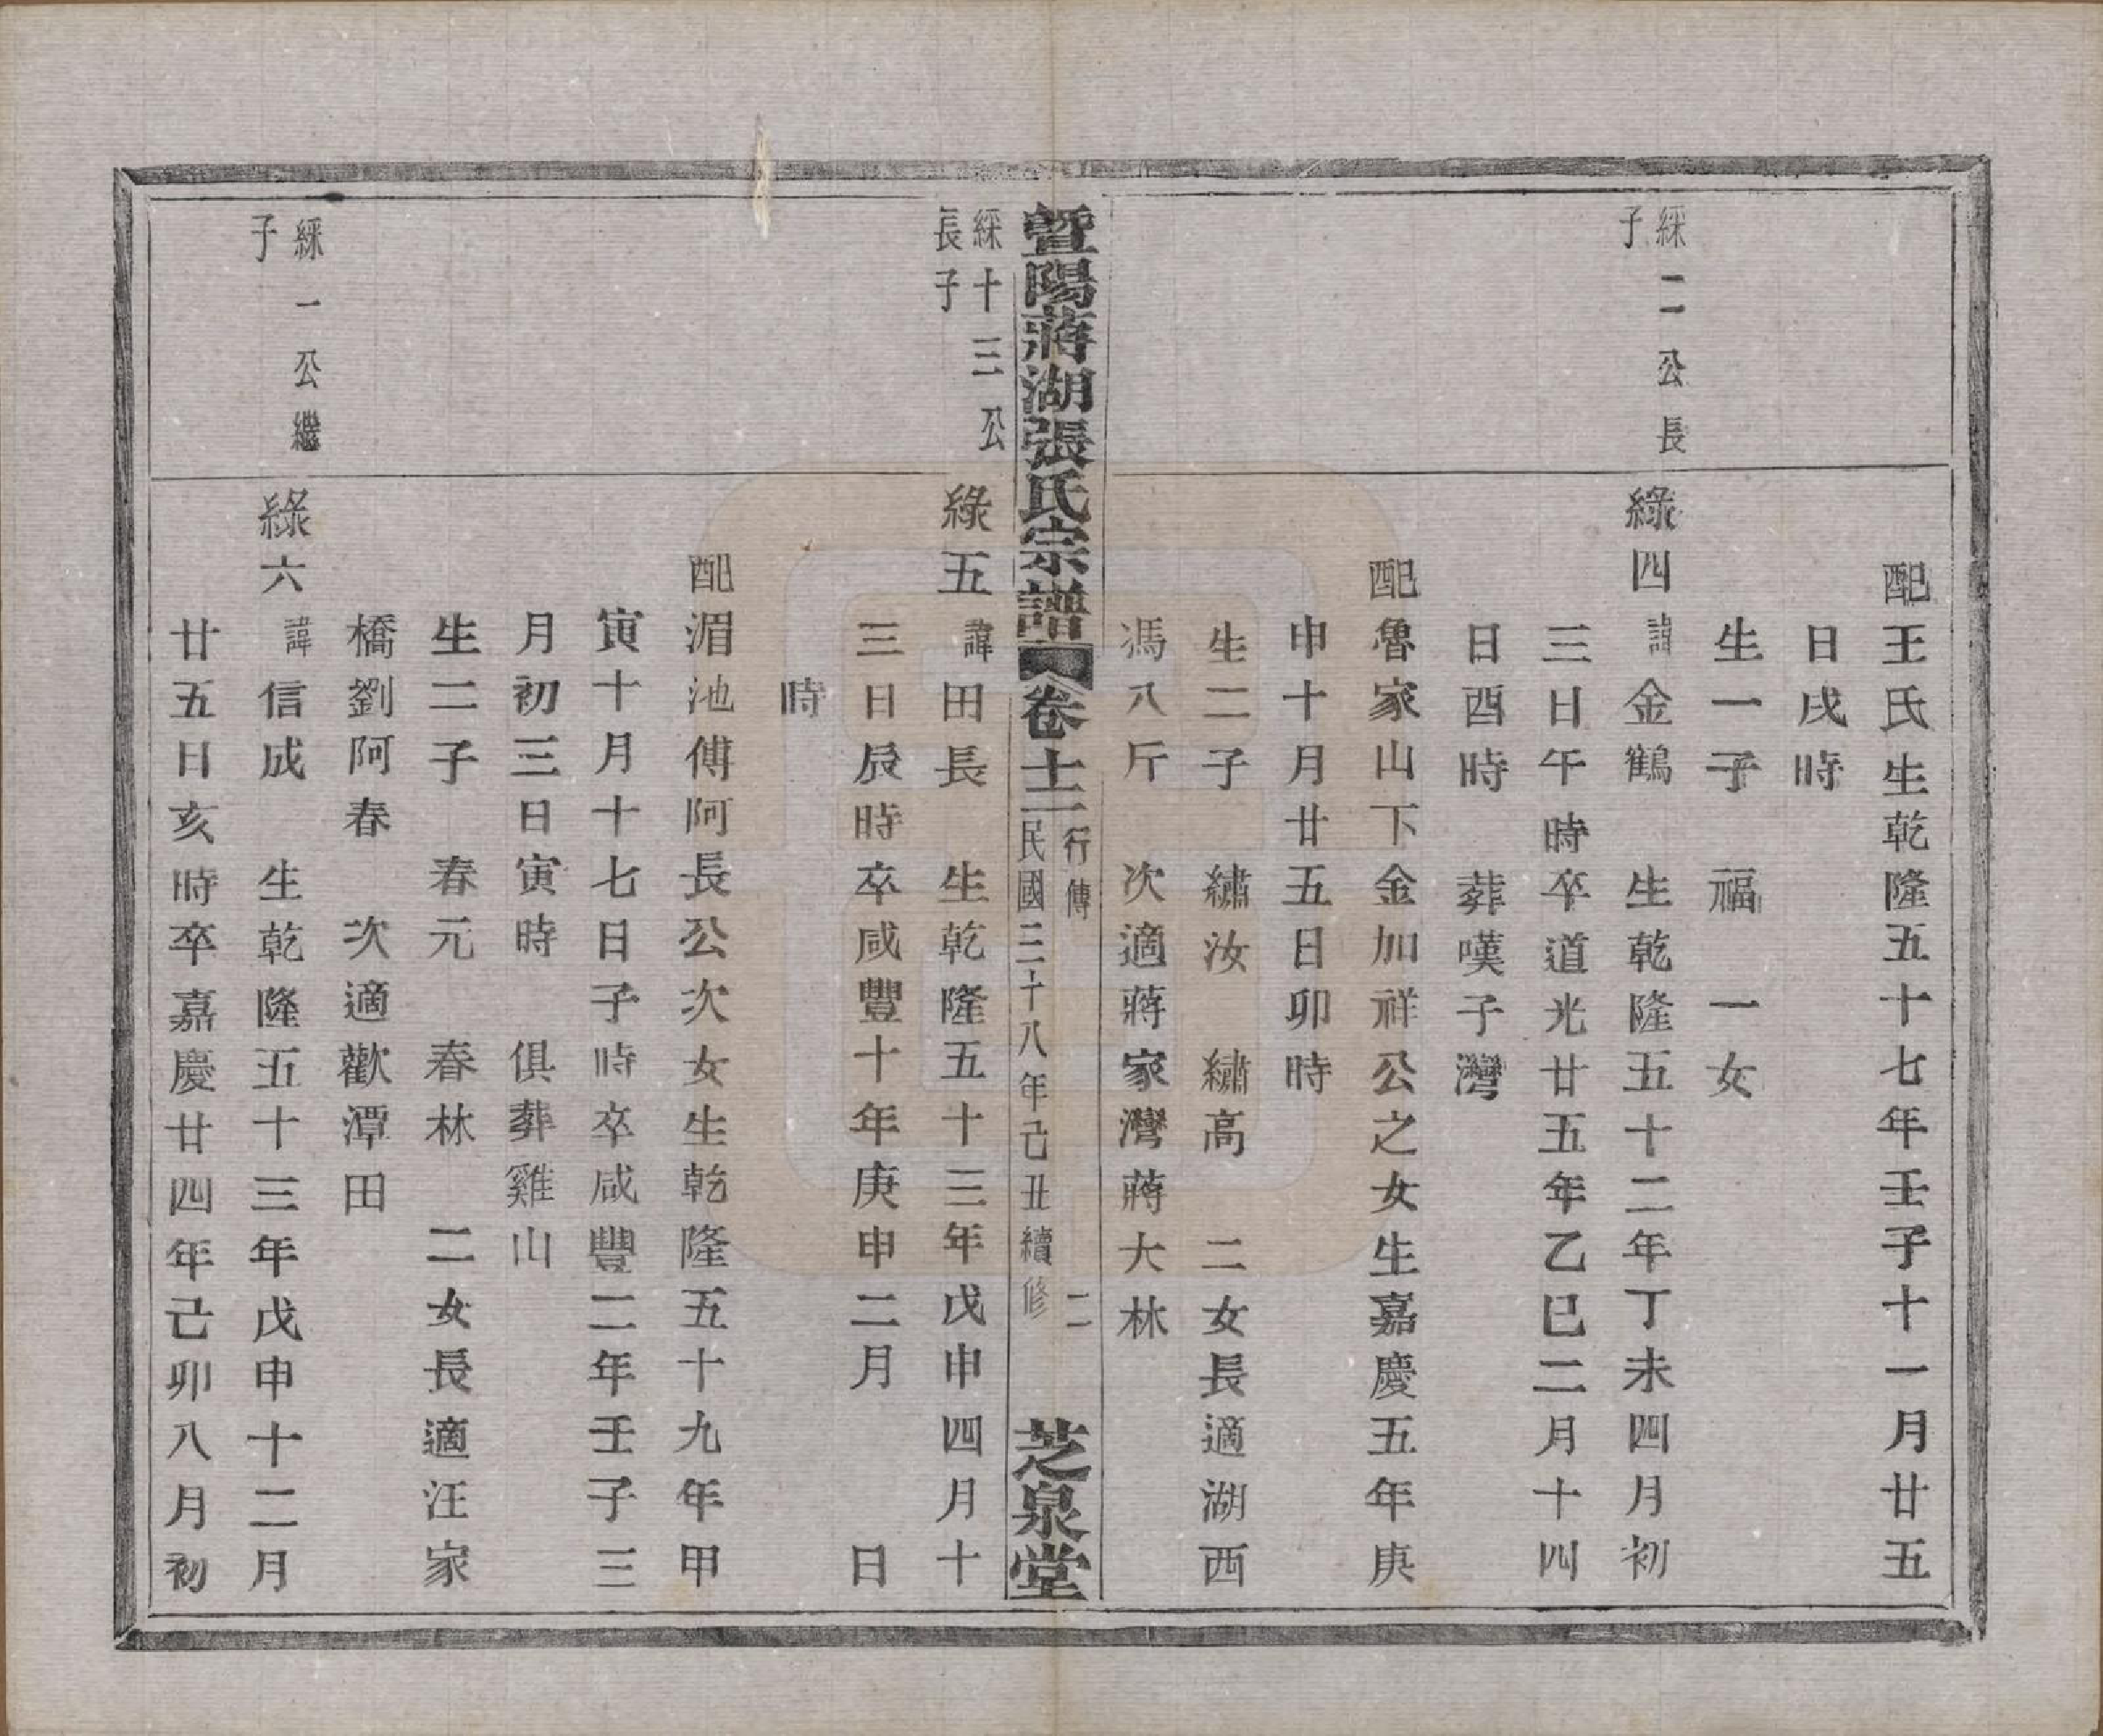 配王氏生乾隆五十七年壬子十一月廿五
日戌時
生一子 福 一女
綵二公長
子
綠四諱金鶴 生乾隆五十二年丁未四月初
三日午時卒道光廿五年乙巳二月十四
日酉時 葬嘆子灣
配魯家山下金加祥公之女生嘉慶五年庚
申十月廿五日卯時
生二子 繡汝 繡高 二女長適湖西
馮八斤 次適蔣家灣蔣大林
暨陽蔣湖張氏宗譜 卷十二 行傳 民國三十八年己丑續修 二 芝泉堂
綵十三公
長子
綠五諱田長 生乾隆五十三年戊申四月十
三日辰時卒咸豐十年庚申二月 日
時
配湄池傅阿長公次女生乾隆五十九年甲
寅十月十七日子時卒咸豐二年壬子三
月初三日寅時 俱葬雞山
生二子 春元 春林 二女長適汪家
橋劉阿春 次適歡潭田
綵一公繼
子
綠六諱信成 生乾隆五十三年戊申十二月
廿五日亥時卒嘉慶廿四年己卯八月初